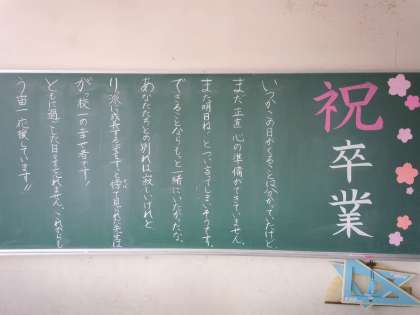 祝卒業
いつかこの日がくることは分かっていたけど、
まだ正直 心の準備ができていません。
また明日ね、といってしまいそうです。
できることならもっと一緒にいたかったな。
あなたたちとの別れは寂しいけれど
り派に成長する姿をずっと傍で見られた先生は
がっ校一の幸せ者です!
ともに過ごした日々を忘れません。これからも
う宙一応援しています!!